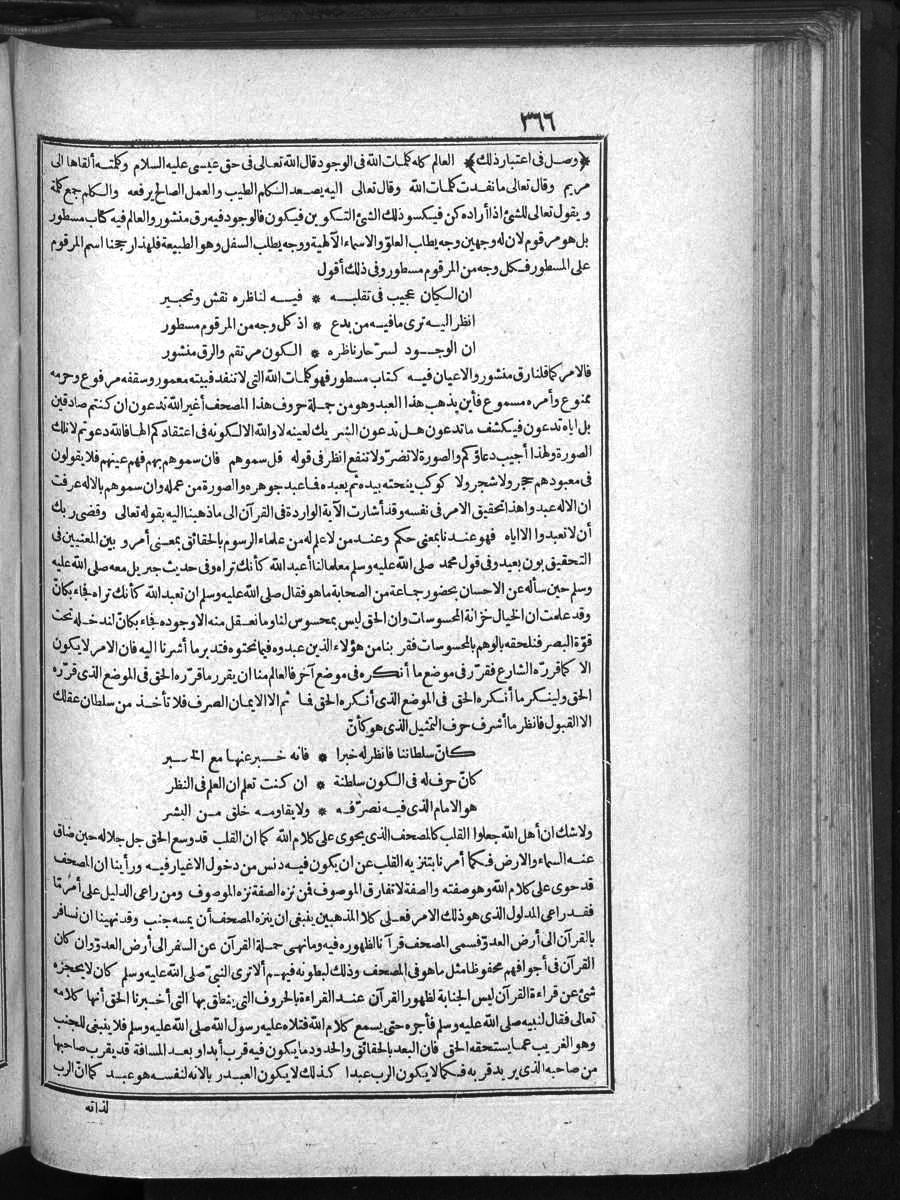 ٣٦٦
﴿وصل فى اعتبار ذلك﴾ العالم كله كلمات الله فى الوجود قال الله تعالى فى حق عيسى عليه السلام وكلمته ألقاها الى
مريم وقال تعالى ما نفدت كلمات الله وقال تعالى اليه يصعد الكلم الطيب والعمل الصالح يرفعه والكلم جمع كلمة
ويقول تعالى للشئ اذا أراده كن فيكسو ذلك الشئ التكوين فيكون فالوجود فيه رق منشور والعالم فيه كتاب مسطور
بل هو مرقوم لان له وجهين وجه يطلب العلو والاسماء الالهية ووجه يطلب السفل وهو الطبيعة فلهذا رجحنا اسم المرقوم
على المسطور فكل وجه من المرقوم مسطور وفى ذلك أقول
ان الكيان عجيب فى تقلبه * فيه لناظره نقش وتحبير
انظر اليه ترى ما فيه من بدع * اذ كل وجه من المرقوم مسطور
ان الوجود لسرّ حار ناظره * الكون مرتقم والرق منشور
فالامر كما قلنا رق منشور والاعيان فيه كتاب مسطور فهو كلمات الله التى لا تنفد فبيته معمور وسقفه مرفوع وحرمه
ممنوع وأمره مسموع فأين يذهب هذا العبد وهو من جملة حروف هذا المصحف أغير الله تدعون ان كنتم صادقين
بل اياه تدعون فيكشف ما تدعون هل تدعون الشريك لعينه لا والله الا لكونه فى اعتقادكم الها فالله دعوتم لا تلك
الصورة ولهذا أجيب دعاؤكم والصورة لا تضرّ ولا تنفع انظر فى قوله قل سموهم فان سموهم بهم فهم عينهم فلا يقولون
فى معبودهم حجر ولا شجر ولا كوكب ينحته بيده ثم يعبده فما عبد جوهره والصورة من عمله وان سموهم بالاله عرفت
ان الاله عبدوا هذا تحقيق الامر فى نفسه وقد أشارت الآية الواردة فى القرآن الى ما ذهبنا اليه بقوله تعالى وقضى ربك
أن لا تعبدوا الا اياه فهو عندنا بمعنى حكم وعند من لا علم له من علماء الرسوم بالحقائق بمعنى أمر و بين المعنيين فى
التحقيق بون بعيد وفى قول محمد صلى الله عليه وسلم معلما لنا أعبد الله كأنك تراه وفى حديث جبريل معه صلى الله عليه
وسلم حين سأله عن الاحسان بحضور جماعة من الصحابة ما هو فقال صلى الله عليه وسلم ان تعبد الله كأنك تراه فجاء بكأنّ
وقد علمت ان الخيال خزانة المحسوسات وان الحق ليس بمحسوس لنا وما نعقل منه الا وجوده فجاء بكأنّ لندخله تحت
قوّة البصر فنلحقه بالوهم بالمحسوسات فقربنا من هؤلاء الذين عبدوه فيما نحتوه فتدبر ما أشرنا اليه فان الامر لا يكون
الا كما قرره الشارع فقرّر فى موضع ما أنكره فى موضع آخر فالعالم منا ان يقرر ما قرّره الحق فى الموضع الذى قرّره
الحق ولينكر ما أنكره الحق فى الموضع الذى أنكره الحق فما ثم الا الايمان الصرف فلا تأخذ من سلطان عقلك
الا القبول فانظر ما أشرف حرف التمثيل الذى هو كأنّ
كأنّ سلطاننا فانظر له خبرا * فانه خبر عنها مع الخبر
كأنّ حرف له فى الكون سلطنة * ان كنت تعلم ان العلم فى النظر
هو الامام الذى فيه نصرّفه * ولا يقاومه خلق من البشر
ولا شك ان أهل الله جعلوا القلب كالمصحف الذى يحوى على كلام الله كما ان القلب قد وسع الحق جل جلاله حين ضاق
عنه السماء والارض فكما أمرنا بتنزيه القلب عن ان يكون فيه دنس من دخول الاغيار فيه ورأينا ان المصحف
قد حوى على كلام الله وهو صفته والصفة لا تفارق الموصوف فمن نزه الصفة نزه الموصوف ومن راعى الدليل على أمر مّا
فقد راعى المدلول الذى هو ذلك الامر فعلى كلا المذهبين ينبغى ان ينزه المصحف أن يمسه جنب وقد نهينا ان نسافر
بالقرآن الى أرض العدوّ فسمى المصحف قرآنا لظهوره فيه وما نهى حملة القرآن عن السفر الى أرض العدوّ وان كان
القرآن فى أجوافهم محفوظا مثل ما هو فى المصحف وذلك لبطونه فيهم ألا ترى النبىّ صلى الله عليه وسلم كان لا يحجزه
شئ عن قراءة القرآن ليس الجنابة لظهور القرآن عند القراءة بالحروف التى ينطق بها التى أخبرنا الحق أنها كلامه
تعالى فقال لنبيه صلى الله عليه وسلم فأجره حتى يسمع كلام الله فتلاه عليه رسول الله صلى الله عليه وسلم فلا ينبغى للجنب
وهو الغريب عما يستحقه الحق فان البعد بالحقائق والحدود ما يكون فيه قرب أبدا وبعد المسافة قد يقرب صاحبها
من صاحبه الذى يريد قربه فكما لا يكون الرب عبدا كذلك لا يكون العبد ربا لانه لنفسه هو عبد كما انّ الرب
لذاته